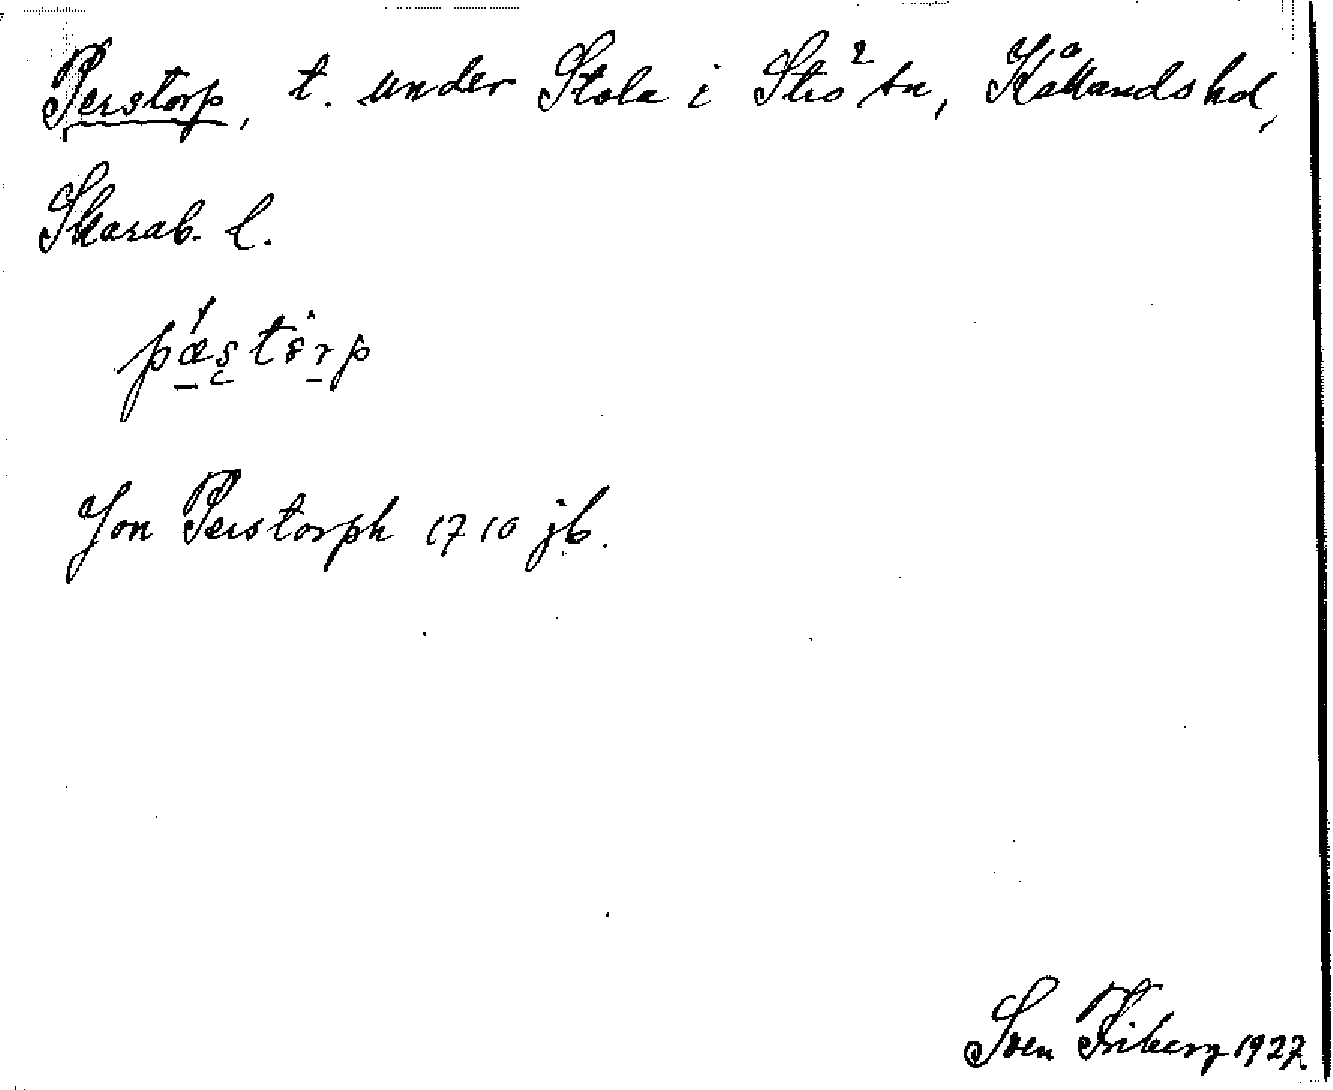 Perstorp, t. under Stola i Strö sn, Kållands hd,
Skarab. l.
Jon Perstorph 1710 jb.
Sven Friberg 1927.